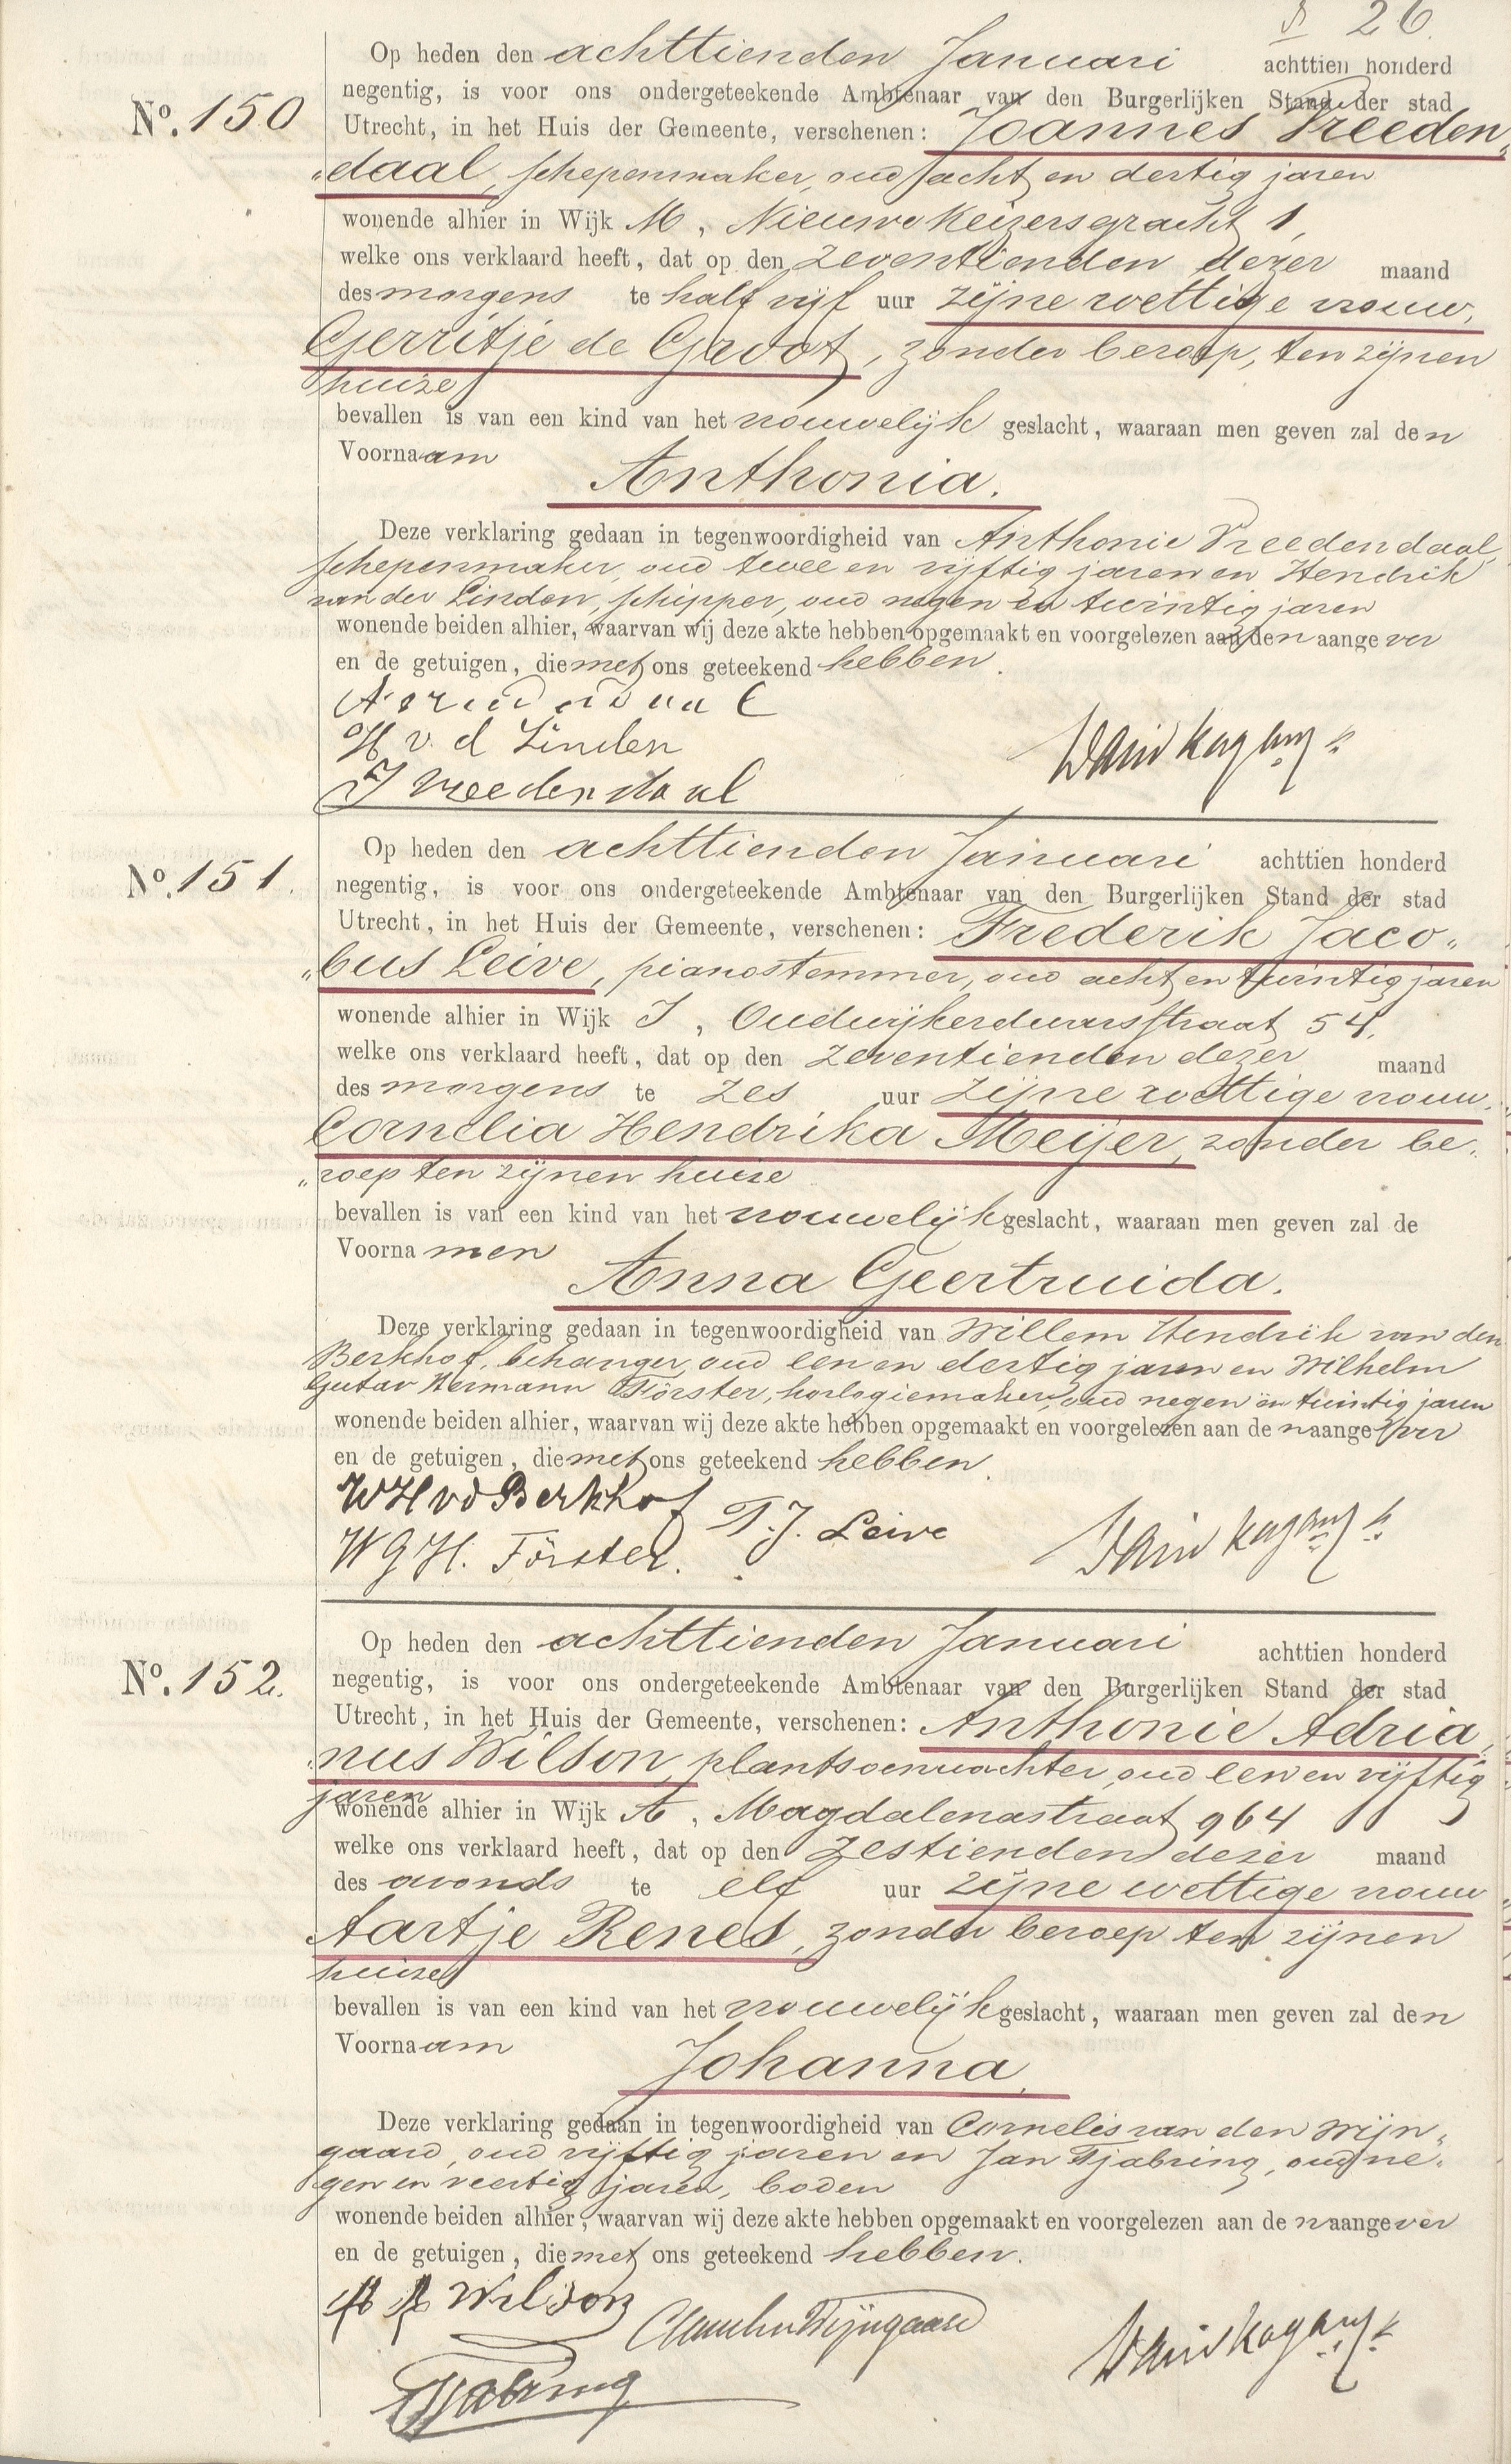 26.
Op heden den achttienden Januari achttien honderd
No. 150 negentig, is voor ons ondergeteekende Ambtenaar van den Burgerlijken Stand der stad
Utrecht, in het Huis der Gemeente, verschenen: Joannes Vreeden„
„daal, schepenmaker, oud acht en dertig jaren
wonende alhier in Wijk M, Nieuwe Keizersgracht 1,
welke ons verklaard heeft, dat op den zeventienden dezer maand
des morgens te half vijf uur zijne wettige vrouw,
Gerritje de Groot, zonder beroep, ten zijnen
huize
bevallen is van een kind van het vrouwelijk geslacht, waaraan men geven zal den
Voornaam
Anthonia.
Deze verklaring gedaan in tegenwoordigheid van Anthonie Vreedendaal,
schepenmaker, oud twee en vijftig jaren en Hendrik
van der Linden, schipper, oud negen en twintig jaren
wonende beiden alhier, waarvan wij deze akte hebben opgemaakt en voorgelezen aan den aangever
en de getuigen, die met ons geteekend hebben.
H v. d Linden
J Vreedendaal
Op heden den achttienden Januari achttien honderd
No. 151. negentig, is voor ons ondergeteekende Ambtenaar van den Burgerlijken Stand der stad
Utrecht, in het Huis der Gemeente, verschenen: Frederik Jaco„
„bus Leive, pianostemmer, oud acht en twintig jaren
wonende alhier in Wijk I, Oudwijkerdwarsstraat 54,
welke ons verklaard heeft, dat op den zeventienden dezer maand
des morgens te zes uur zijne wettige vrouw,
Cornelia Hendrika Meijer, zonder be„
„roep ten zijnen huize
bevallen is van een kind van het vrouwelijk geslacht, waaraan men geven zal de
Voornamen
Anna Geertruida.
Deze verklaring gedaan in tegenwoordigheid van Willem Hendrik van den
Berkhof, behanger, oud een en dertig jaren en Wilhelm
Gustav Hermann Förster, horlogiemaker, oud negen en twintig jaren
wonende beiden alhier, waarvan wij deze akte hebben opgemaakt en voorgelezen aan den aangever
en de getuigen, die met ons geteekend hebben.
WH vd Berkhof
F. J. Leive
W G H. Förster.
Op heden den achttienden Januari achttien honderd
No. 152. negentig, is voor ons ondergeteekende Ambtenaar van den Burgerlijken Stand der stad
Utrecht, in het Huis der Gemeente, verschenen: Anthonie Adria„
„nus Wilson, plantsoenwachter, oud een en vijftig
jaren
wonende alhier in Wijk A, Magdalenastraat 964
welke ons verklaard heeft, dat op den zestienden dezer maand
des avonds te elf uur zijne wettige vrouw
Aartje Renes, zonder beroep ten zijnen
huize
bevallen is van een kind van het vrouwelijk geslacht, waaraan men geven zal den
Voornaam
Johanna.
Deze verklaring gedaan in tegenwoordigheid van Cornelis van den Wijn„
gaard, oud vijftig jaren en Jan Tjabring, oud ne„
gen en veertig jaren, boden
wonende beiden alhier, waarvan wij deze akte hebben opgemaakt en voorgelezen aan den aangever
en de getuigen, die met ons geteekend hebben.
A A Wilson
Tjabring